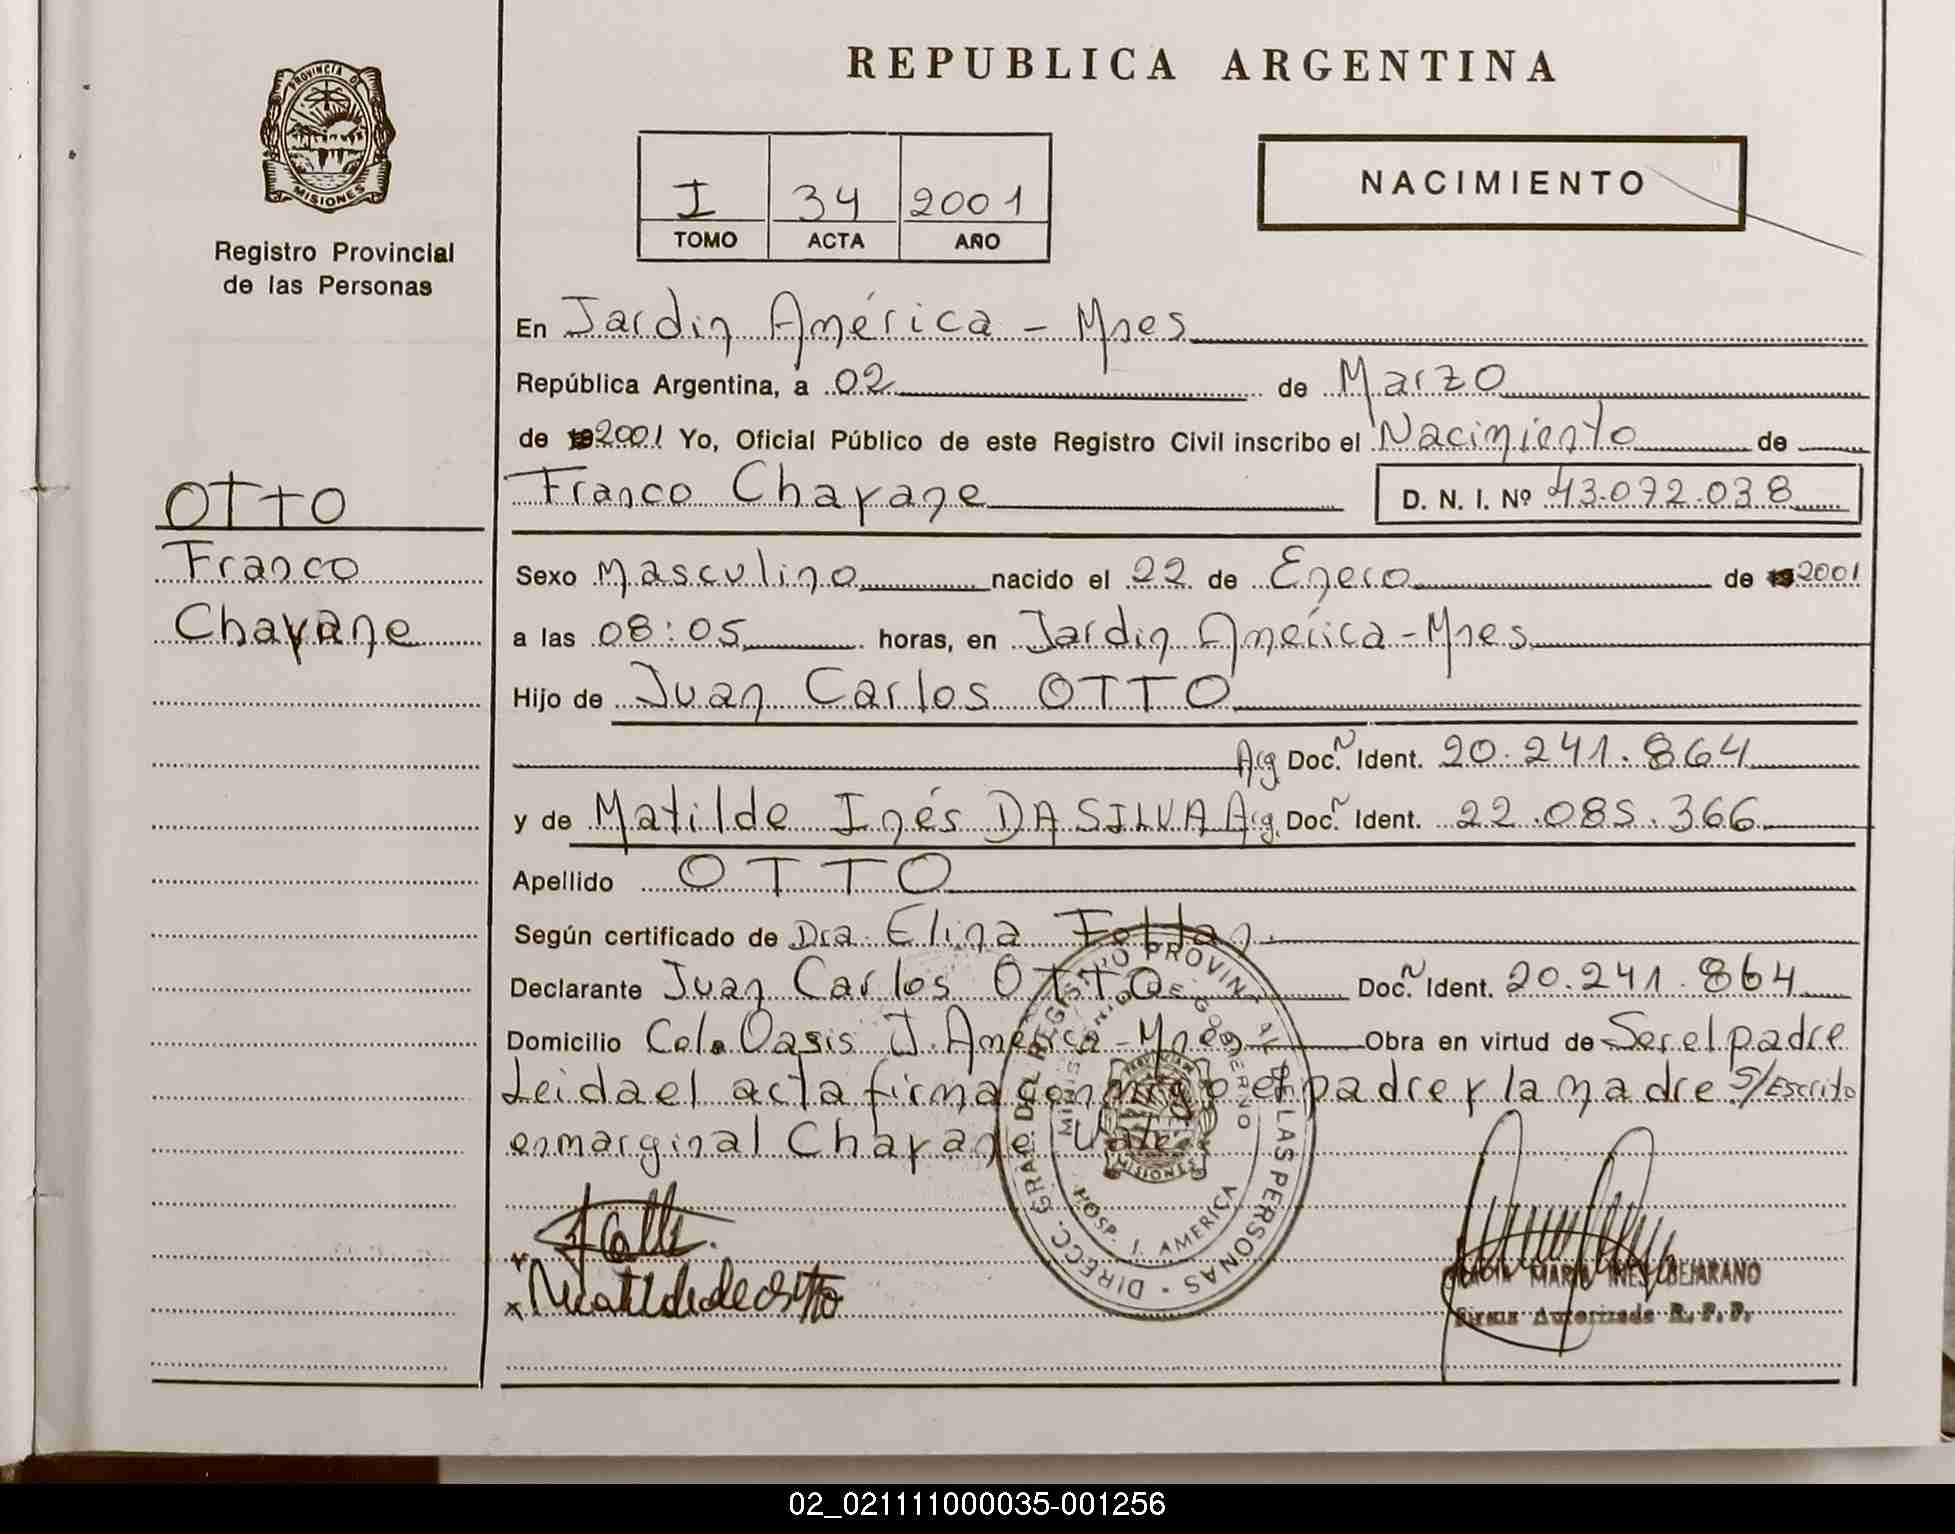 REPUBLICA ARGENTINA
PROVINCIA DE
MISIONES
Registro Provincial
de las Personas
I 34 2001
TOMO ACTA AÑO
NACIMIENTO
En Jardin América - Mnes
República Argentina, a 02 de Marzo
de 192001 Yo, Oficial Público de este Registro Civil inscribo el Nacimiento de
Franco Chayane D. N. I. Nº 43.072.038
OTTO
Franco
Chayane
Sexo Masculino nacido el 22 de Enero de 192001
a las 08:05 horas, en Jardin América - Mnes
Hijo de Juan Carlos OTTO
Arg Doc. N Ident. 20.241.864
y de Matilde Inés DA SILVA Arg. Doc. N Ident. 22.085.366
Apellido OTTO
Según certificado de Dra. Elina
Declarante Juan Carlos OTTO Doc. N Ident. 20.241.864
Domicilio Col. Oasis J. América - Mnes Obra en virtud de Ser el padre
Leida el acta firma conmigo el padre y la madre S/Escrito
en marginal Chayane Vale
DIRECC. GRAL. DEL REGISTRO PROVINCIAL DE LAS PERSONAS
MINISTERIO DE GOBIERNO
HOSP. J. AMERICA
MISIONES
x
x Matilde de Otto
MARIA INES BEJARANO
Firma Autorizada R. P. P.
02_021111000035-001256